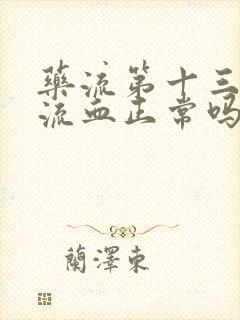 藥流第十三
流血正常吗
蘭澤東